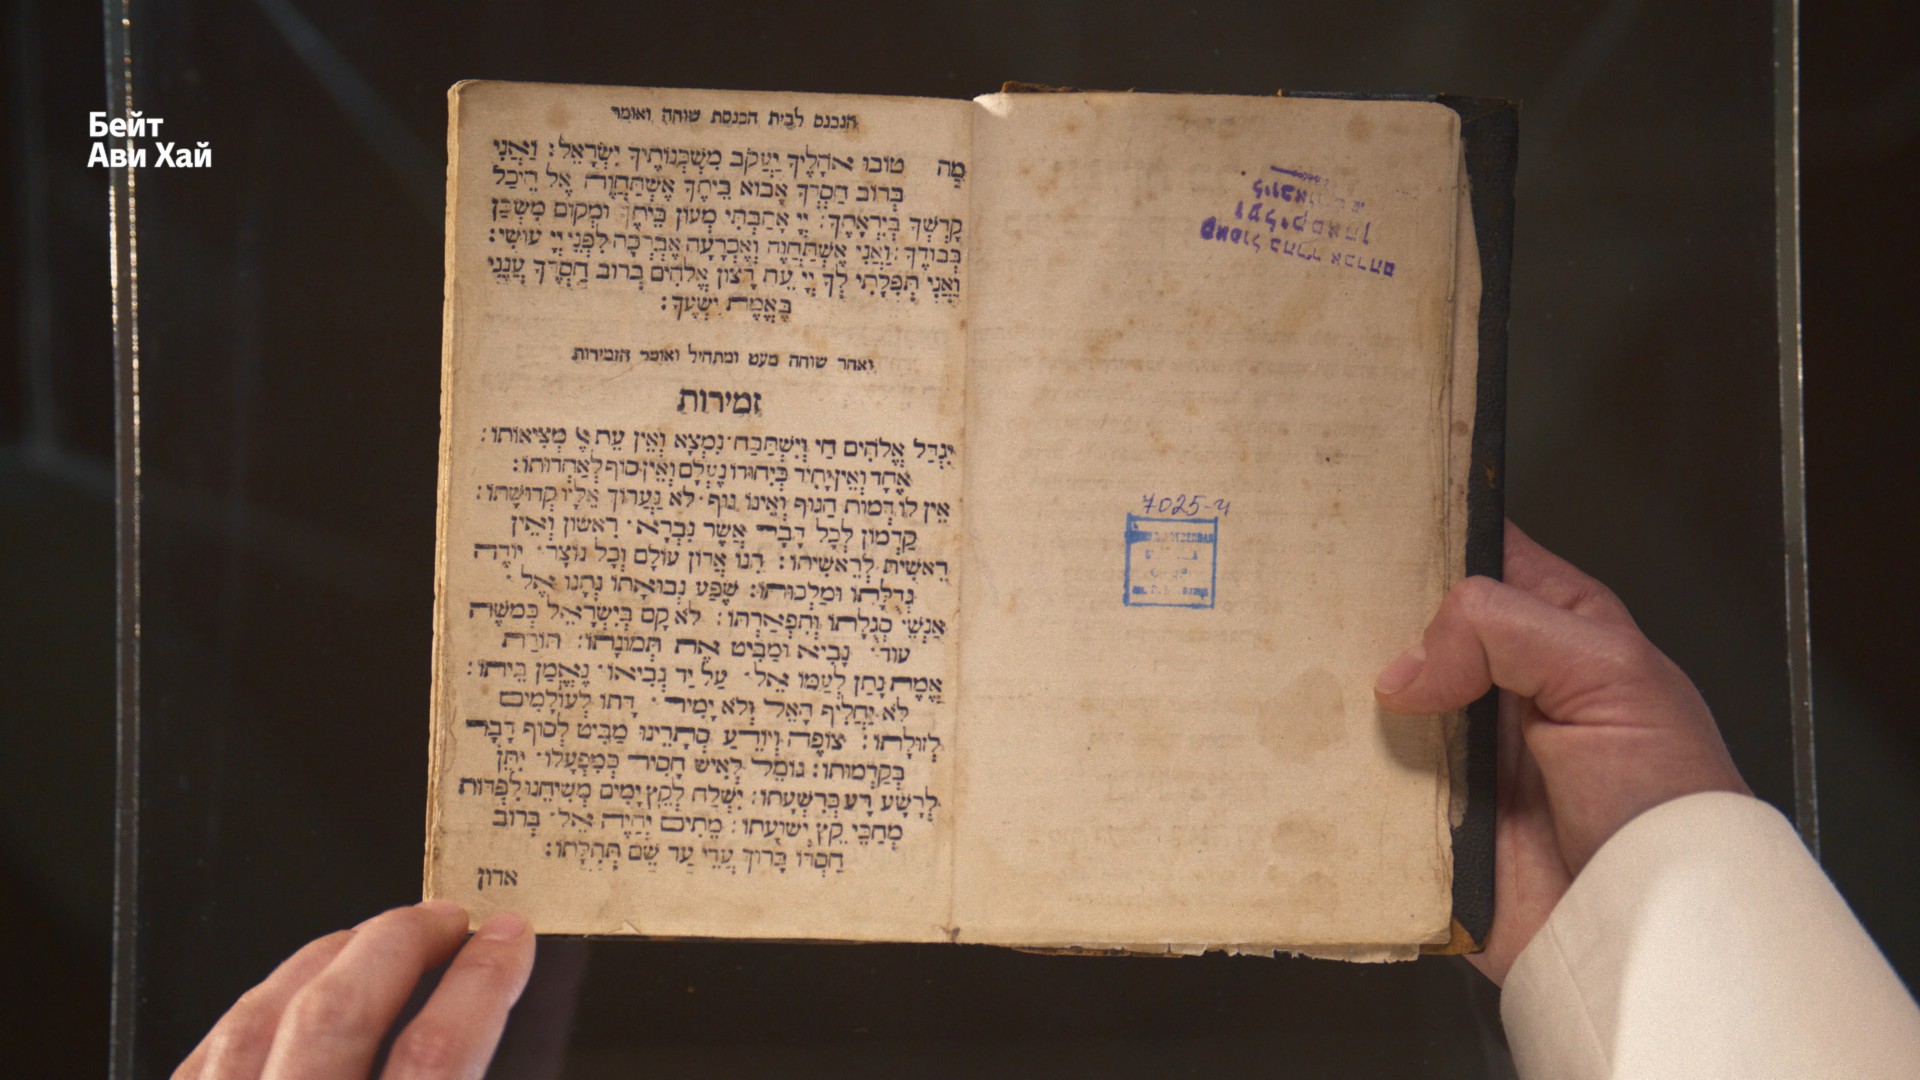 Бейт
Ави Хай
הנכנס לבית הכנסת שוחה ואומר
מַה טובו אֹהָלֶיךָ יַעֲקֹב מִשְׁכְּנוֹתֶיךָ יִשְׂרָאֵל: וַאֲנִי
בְּרוֹב חַסְדְּךָ אָבוֹא בֵיתֶךָ אֶשְׁתַּחֲוֶה אֶל הֵיכַל
קָדְשְׁךָ בְּיִרְאָתֶךָ: יְיָ אָהַבְתִּי מְעוֹן בֵּיתֶךָ וּמְקוֹם מִשְׁכַּן
כְּבוֹדֶךָ: וַאֲנִי אֶשְׁתַּחֲוֶה וְאֶכְרָעָה אֶבְרְכָה לִפְנֵי יְיָ עוֹשִׂי:
וַאֲנִי תְפִלָּתִי לְךָ יְיָ עֵת רָצוֹן אֱלֹהִים בְּרוֹב חַסְדֶּךָ עֲנֵנִי
בֶּאֱמֶת יִשְׁעֶךָ:
ואחר שוחה מעט ומתחיל ואומר הזמירות
זמירות
יִגְדַּל אֱלֹהִים חַי וְיִשְׁתַּבַּח נִמְצָא וְאֵין עֵת אֶל מְצִיאוּתוֹ:
אֶחָד וְאֵין יָחִיד כְּיִחוּדוֹ נֶעְלָם וְאֵין סוֹף לְאַחְדוּתוֹ:
אֵין לוֹ דְּמוּת הַגּוּף וְאֵינוֹ גוּף· לֹא נַעֲרוֹךְ אֵלָיו קְדוּשָּׁתוֹ:
קַדְמוֹן לְכָל דָּבָר אֲשֶׁר נִבְרָא· רִאשׁוֹן וְאֵין
רֵאשִׁית לְרֵאשִׁיתוֹ: הִנּוֹ אֲדוֹן עוֹלָם וְכָל נוֹצָר· יוֹרֶה
גְדֻלָּתוֹ וּמַלְכוּתוֹ: שֶׁפַע נְבוּאָתוֹ נְתָנוֹ אֶל·
אַנְשֵׁי סְגֻלָּתוֹ וְתִפְאַרְתּוֹ: לֹא קָם בְּיִשְׂרָאֵל כְּמֹשֶׁה
עוֹד· נָבִיא וּמַבִּיט אֶת תְּמוּנָתוֹ: תּוֹרַת
אֱמֶת נָתַן לְעַמּוֹ אֵל· עַל יַד נְבִיאוֹ· נֶאֱמַן בֵּיתוֹ:
לֹא יַחֲלִיף הָאֵל וְלֹא יָמִיר· דָּתוֹ לְעוֹלָמִים
לְזוּלָתוֹ: צוֹפֶה וְיוֹדֵעַ סְתָרֵינוּ מַבִּיט לְסוֹף דָּבָר
בְּקַדְמוּתוֹ: גּוֹמֵל לְאִישׁ חָסִיד כְּמִפְעָלוֹ· יִתֵּן
לְרָשָׁע רָע כְּרִשְׁעָתוֹ: יִשְׁלַח לְקֵץ יָמִים מְשִׁיחֵנוּ לִפְדּוֹת
מְחַכֵּי קֵץ יְשׁוּעָתוֹ: מֵתִים יְחַיֶּה אֵל· בְּרוֹב
חַסְדּוֹ בָּרוּךְ עֲדֵי עַד שֵׁם תְּהִלָּתוֹ:
אדון
7025-ч